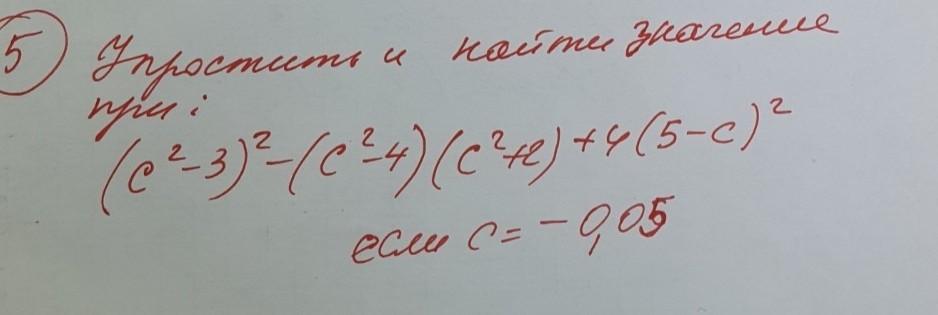 5 Упростить и найти значение
при:
(c²-3)²-(c²-4)(c²+2)+4(5-c)²
если c=-0,05